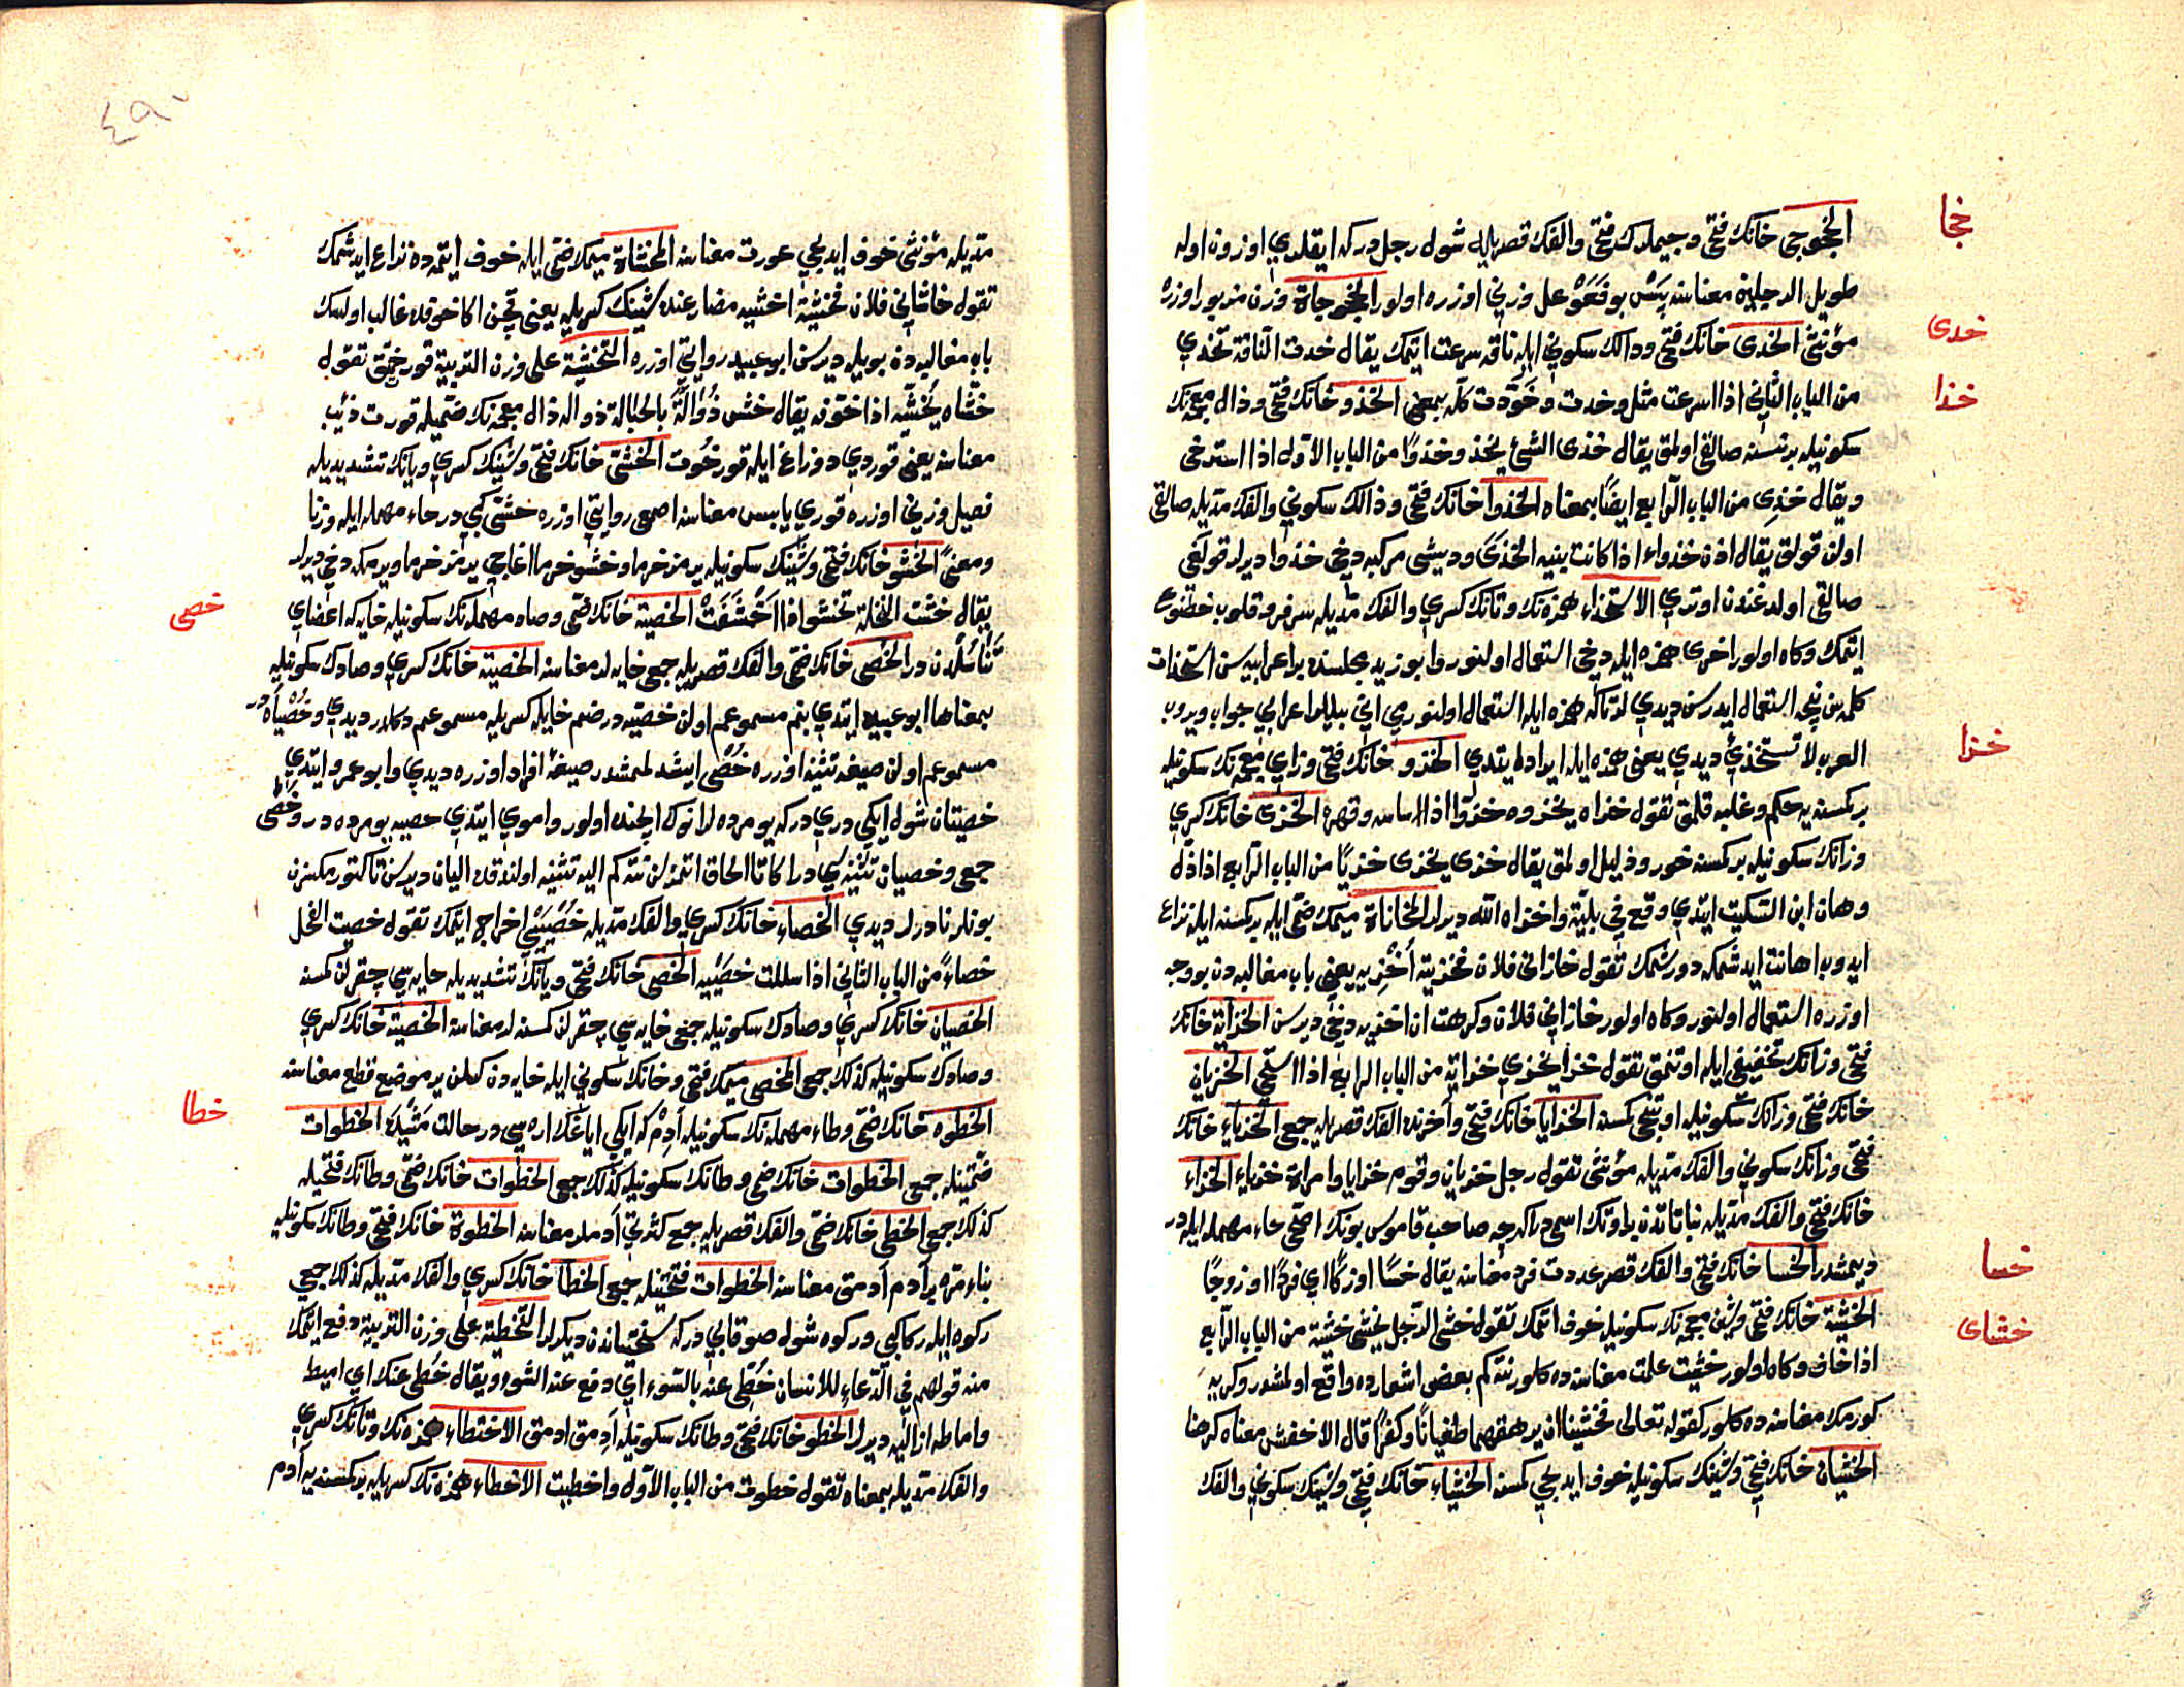 خجا
الخجوجى خانك فتحى وجيملرك فتحى والفك قصريله شول رجلدركه ايقلري اوزون اوله
طويل الرجلين معناسنه پس بو فعوعل وزني اوزره اولور الخجوجاة وزن مزبور اوزره
خدى
مؤنثى الخدى خانك فتحى ودالك سكوني ايله ناقه سرعت ايتمك يقال خدت الناقة تخدي
خذا
من الباب الثاني اذا اسرعت مثل وخدت وخودت كله بمعنى الخذو خانك فتحى وذال معجمه نك
سكونيله برنسنه صالقي اولمق يقال خذى الشئ يخذو وخذوا من الباب الاول اذا استرخى
ويقال خذى من الباب الرابع ايضا بمعناه الخذوا خانك فتحى وذالك سكوني والفك مديله صالقى
اولن قولق يقال اذن خذواء اذا كانت بينه الخذى وديشى مركبه دخى خذوا ديرلر قولغى
صالقى اولدغندن اوتري الاستخذاء همزه نك وتانك كسري والفك مديله سرفرو قلوب خضوع
ايتمك وكاه اولور اخرى همزه ايله دخى استعمال اولنور وابو زيد مجلسنده بر اعرابييه سن استخذات
كلمه سن نيجه استعمال ايدرسن ديدي لر تاكه همزه ايله استعمال اولنورمي اني بيله لر اعرابي جواب ويروب
خزا
العرب لا تستخذئ ديدي يعنى همزه ايله ايراد ايتدي الخزو خانك فتحى وزاي معجمه نك سكونيله
بركسنه يه حكم وغلبه قلمق تقول خزاه يخزوه خزوا اذا ساسه وقهره الخزى خانك كسري
وزانك سكونيله بركسنه خور وذليل اولمق يقال خزى يخزى خزيا من الباب الرابع اذا ذل
وهان ابن السكيت ايتدي وقع في بلية واخزاه الله ديرلر المخازاة ميمك ضمى ايله بركسنه ايله نزاع
ايدوب اهانت ايدشمكه دورشمك تقول خازانى فلان فخزيته اخزيه يعنى باب مغالبه دن بو وجه
اوزره استعمال اولنور وكاه اولور خازاني فلان وكرهت ان اخزيه دخى ديرسن الخزاية خانك
فتحى وزانك تخفيفى ايله اوتنمق تقول خزا يخزي خزاية من الباب الرابع اذا استحى الخزيان
خانك فتحى وزانك سكونيله اوتنجى كمسنه الخزايا خانك فتحى وآخرنده الفك قصريله جمعى الخزياء خانك
فتحى وزانك سكوني والفك مديله مؤنثى تقول رجل خزيان وقوم خزايا وامراة خزياء الخزاء
خانك فتحى والفك مديله نباتاتدن بر اوتك اسمى در اكرچه صاحب قاموس بونك اصحى حاء مهمله ايله در
خسا
ديمشدر الخسا خانك فتحى والفك قصرى عددت فرد معناسنه يقال خسا او زكا اي فردا او زوجا
خشاى
الخشية خانك فتحى وشين معجمه نك سكونيله خوف ايتمك تقول خشى الرجل يخشى خشية من الباب الرابع
اذا خاف وكاه اولور خشيت علمت معناسنه ده كلور نته كم بعضى اشعارده واقع اولمشدر وكريه
كورمك معناسنه ده كلور كقوله تعالى فخشينا ان يرهقهما طغيانا وكفرا قال الاخفش معناه كرهنا
الخشيان خانك فتحى وشينك سكونيله خوف ايديجى كمسنه الخشياء خانك فتحى وشينك سكوني والفك
٤٩٠
مديله مؤنثى خوف ايديجى عورت معناسنه المخاشاة ميمك ضمى ايله خوف ايتمه ده نزاع ايدشمك
تقول خاشاني فلان فخشيته اخشيه مضارعنده شينك كسريله يعنى قچن اكا خوفده غالب اولسك
باب مغالبه ده بويله ديرسن ابو عبيد روايتي اوزره التخشية على وزن التربية قورختمق تقول
خشاه يخشيه اذا خوفه يقال خش ذؤالة بالحبالة ذواله ذال معجمه نك ضميله قورت ذئب
معناسنه يعنى قوردي دوزاغ ايله قورخوت الخشى خانك فتحى وشينك كسري ويانك تشديديله
فعيل وزني اوزره قوري يابس معناسنه اصمعى روايتي اوزره خشى كبى در حاء مهمله ايله وزنا
ومعنى الخشو خانك فتحى وشينك سكونيله يرمز خرما وخشو خرما اغاجي يرمز خرما ويرمكه دخى ديرلر
خصى
يقال خشت النخلة تخشو اذا اخشفت الخصية خانك ضمى وصاد مهمله نك سكونيله خايه كه اعضاي
تناسلدن در الخصى خانك ضمى والفك قصريله جمعى خايه لر معناسنه الخصية خانك كسري وصادك سكونيله
بمعناها ابو عبيده ايتدي بنم مسموعم اولن خصيه در ضم خايله كسريله مسموعم دكلدر ديدي وخصياه در
مسموعم اولن صيغه تثنيه اوزره خصى ايشدلمشدر صيغه افراد اوزره ديدي وابو عمرو ايتدي
خصيتان شول ايكي دري در كه يومرده لر انوك ايچنده اولور واموي ايتدي خصيه يومرده در وخصى
جمعى وخصيان تثنيه سي در اكا تا الحاق اتمزلر نته كم اليه تثنيه اولندقده اليان ديرسن تا كتورمكسزن
بونلر نادرلر ديدي الخصاء خانك كسري والفك مديله خصييسي اخراج ايتمك تقول خصيت الفحل
خصاء من الباب الثاني اذا سللت خصييه الخصى خانك فتحى ويانك تشديديله خايه سي چقرلن كمسنه
الخصيان خانك كسري وصادك سكونيله جمعى خايه سي چقرلن كسنه لر معناسنه الخصية خانك كسري
وصادك سكونيله كذلك جمعى المخصى ميمك فتحى وخانك سكوني ايله خايه دن كسلن ير موضع قطع معناسنه
خطا
الخطوه خانك ضمى وطاء مهمله نك سكونيله آدم كه ايكي اياغك اره سي در حالت مشيده الخطوات
ضمتينله جمعى الخطوات خانك ضمى وطانك سكونيله كذلك جمعى الخطوات خانك ضمى وطانك فتحيله
كذلك جمعى الخطى خانك ضمى والفك قصريله جمع كثرتي آدملر معناسنه الخطوة خانك فتحى وطانك سكونيله
بناء مره بر آدم آدمق معناسنه الخطوات فتحتينله جمعى الخطا خانك كسري والفك مديله كذلك جمعى
ركوه ايله ركا كبى در كوه شول صو قابي در كه سختياندن ديكرلر التخطية على وزن التربية دفع ايتمك
منه قولهم في الدعاء للانسان خطى عنه بالسوء اي دفع عنه السوء ويقال خطى عنك اي اميط
واماطه ازاليه ديرلر الخطو خانك فتحى وطانك سكونيله آدمق ادمق الاختطاء همزه نك وتانك كسري
والفك مديله بمعناه تقول خطوت من الباب الاول واخطيت الاخطاء همزه نك كسريله بركسنه يه آدم